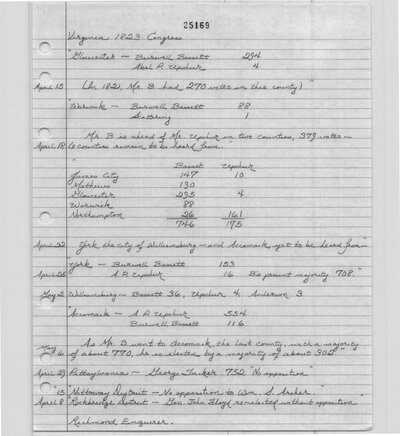 25169
Virginia 1823 Congress
"Gloucester — Burwell Bassett 294
Abel P. Upshur 4
April 15 (In 1821, Mr. B had 270 votes in this county)"
"Warwick — Burwell Bassett 88
Scattering 1
Mr. B is ahead of Mr. Upshur in two counties, 379 votes —
April 18 6 counties remain to be heard from."
Bassett Upshur
James City 147 10
Mathews 190
Gloucester 295 4
Warwick 88
Northampton 26 161
746 175
April 22 York, the city of Williamsburg — and Accomack yet to be heard from —"
"York — Burwell Bassett 153
April 25 A. P. Upshur 16 B's present majority 708."
May 2 Williamsburg — Bassett 36, Upshur 4, Anderson 3
Accomack — A. P. Upshur 554
Burwell Bassett 116
As Mr. B went to Accomack, the last county, with a majority
May 6 of about 770, he is elected by a majority of about 300"
April 29 Pittsylvania — George Tucker 752 "No opposition"
" 15 Nottoway District — No opposition to Wm. S. Archer."
April 8 Rockbridge District — Gen. John Floyd re-elected without opposition"
Richmond Enquirer.